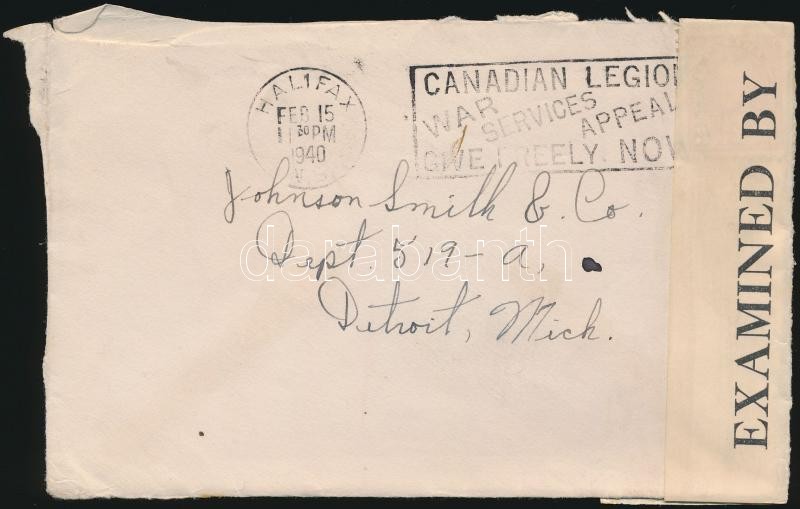 HALIFAX
FEB 15
11 30 PM
1940
N.S.
CANADIAN LEGION
WAR SERVICES APPEAL
GIVE FREELY. NOW
Johnson Smith & Co.
Dept. 519-A,
Detroit, Mich.
darabanth
EXAMINED BY